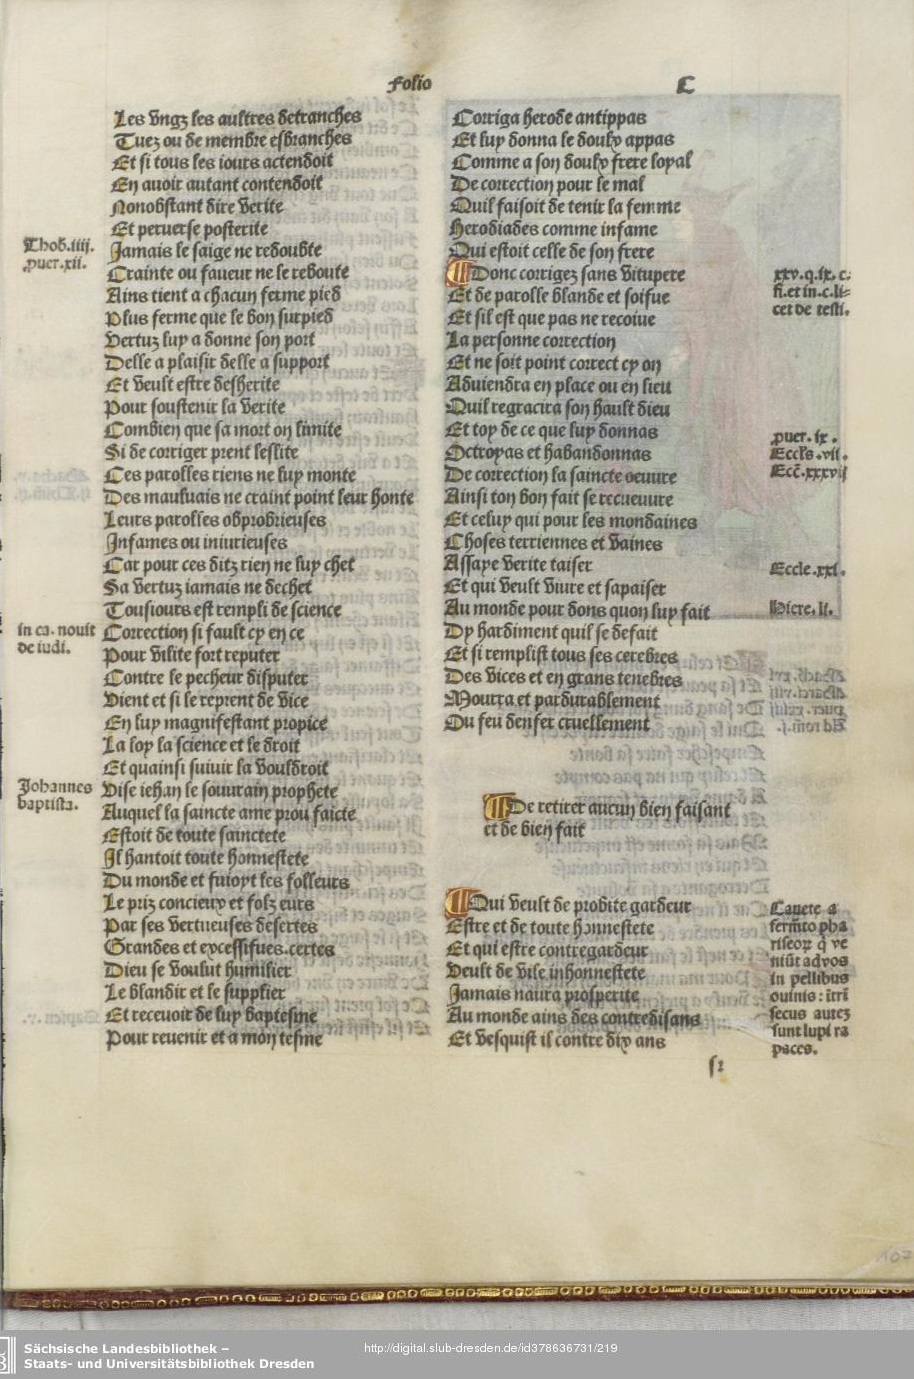 Folio C
Les vngz les aultres detranches
Tuez ou de membre esbranches
Et si tous les iours actendoit
En auoir autant contendoit
Nonobstant dire verite
Et peruerse posterite
Thob. iiij.
puer. xii.
Jamais le saige ne redoubte
Crainte ou faueur ne le reboute
Ains tient a chacun ferme pied
Plus ferme que le bon surpied
Vertuz luy a donne son port
Delle a plaisir delle a support
Et veult estre desherite
Pour soustenir la verite
Combien que sa mort on limite
Si de corriger prent leslite
Ces parolles riens ne luy monte
Des mauluais ne craint point leur honte
Leurs parolles obprobrieuses
Infames ou iniurieuses
Car pour ces ditz rien ne luy chet
Sa vertuz iamais ne dechet
Tousiours est rempli de science
in ca. nouit
de iudi.
Correction si fault cy en ce
Pour vilite fort reputer
Contre le pecheur disputer
Vient et si le reprent de vice
En luy magnifestant propice
La loy la science et le droit
Et quainsi suiuir la vouldroit
Johannes
baptista.
Vise iehan le souurain prophete
Auquel la saincte ame prou faicte
Estoit de toute sainctete
Il hantoit toute honnestete
Du monde et fuioyt les folleurs
Le priz concieux et folz eurs
Par ses vertueuses desertes
Grandes et excessifues certes
Dieu se voulut humilier
Le blandir et le supplier
Et receuoir de luy baptesme
Pour reuenir et a mon tesme
Corriga herode antippas
Et luy donna le doulx appas
Comme a son doulx frere loyal
De correction pour le mal
Quil faisoit de tenir la femme
Herodiades comme infame
Qui estoit celle de son frere
Donc corrigez sans vitupere
Et de parolle blande et soifue
Et sil est que pas ne recoiue
La personne correction
Et ne soit point correct cy on
Aduiendra en place ou en lieu
Quil regracira son hault dieu
Et toy de ce que luy donnas
Octroyas et habandonnas
De correction la saincte oeuure
Ainsi ton bon fait se recueuure
Et celuy qui pour les mondaines
Choses terriennes et vaines
Assaye verite taiser
Et qui veult viure et sapaiser
Au monde pour dons quon luy fait
Dy hardiment quil se defait
Et si remplist tous ses cerebres
Des vices et en grans tenebres
Mourra et pardurablement
Du feu denfer cruellement
xxv. q. ix. c.
fi. et in. c. li=
cet de testi.
puer. ix.
Eccls. vii.
Eccle. xxi.
Hiere. li.
De retirer aucun bien faisant
et de bien fait
Qui veult de probite gardeur
Estre et de toute honnestete
Et qui estre contregardeur
Veult de vile inhonnestete
Jamais naura prosperite
Au monde ains des contredisans
Et vesquist il contre dix ans
Cauete a
fermēto pha
riseoꝝ q̄ ve
niūt ad vos
in pellibus
ouinis: ītrī
secus autez
sunt lupi ra
paces.
Sächsische Landesbibliothek –
Staats- und Universitätsbibliothek Dresden
http://digital.slub-dresden.de/id378636731/219